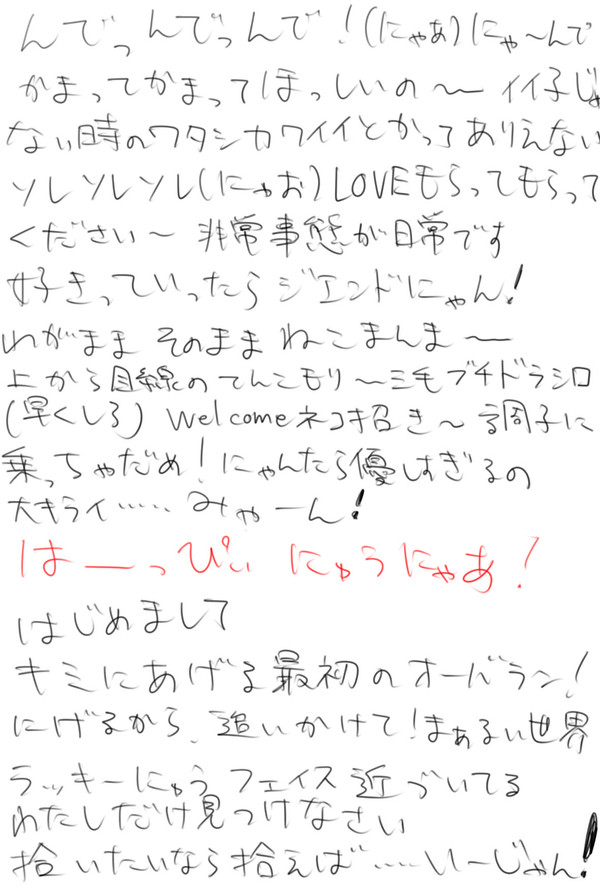 んでっんでっんで！(にゃあ)にゃ〜んで
かまってかまってほっしいの〜 イイ子じゃ
ない時のワタシカワイイとかってありえない
ソレソレソレ(にゃお)LOVEもらってもらって
ください〜 非常事態が日常です
好きっていったらジエンドにゃん！
わがまま そのまま ねこまんま〜
上から目線のてんこモリ〜三毛ブチドラシロ
(早くしろ) Welcomeネコ招き〜調子に
乗っちゃだめ！にゃんたら優しすぎるの
大キライ……みゃーん！
はーっぴぃ にゅうにゃあ！
はじめまして
キミにあげる最初のオーバラン！
にげるから、追いかけて！まぁるい世界
ラッキーにゅうフェイス近づいてる
わたしだけ見つけなさい
拾いたいなら拾えば……いーじゃん！